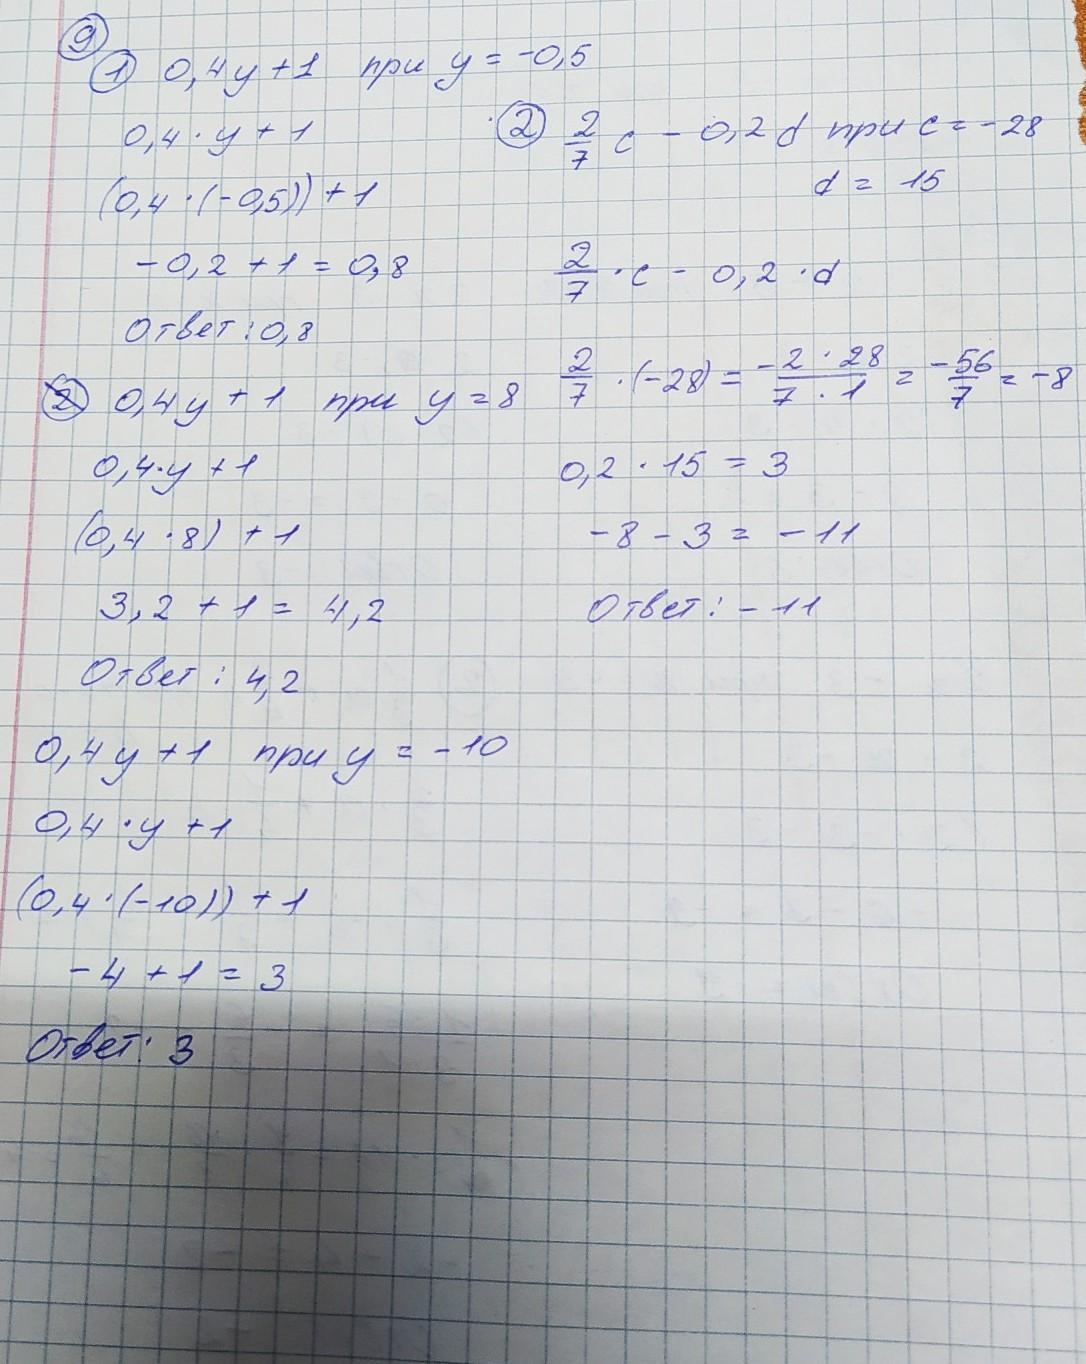 9
1 0,4y+1 при y=-0,5
0,4·y+1
(0,4·(-0,5))+1
-0,2+1=0,8
Ответ:0,8
2 0,4y+1 при y=8
0,4·y+1
(0,4·8)+1
3,2+1=4,2
Ответ: 4,2
0,4y+1 при y=-10
0,4·y+1
(0,4·(-10))+1
-4+1=3
Ответ: 3
2 2/7 c - 0,2d при c=-28
d = 15
2/7 ·c - 0,2·d
2/7 ·(-28) = -2·28/7·1 = -56/7 = -8
0,2·15=3
-8-3=-11
Ответ: -11